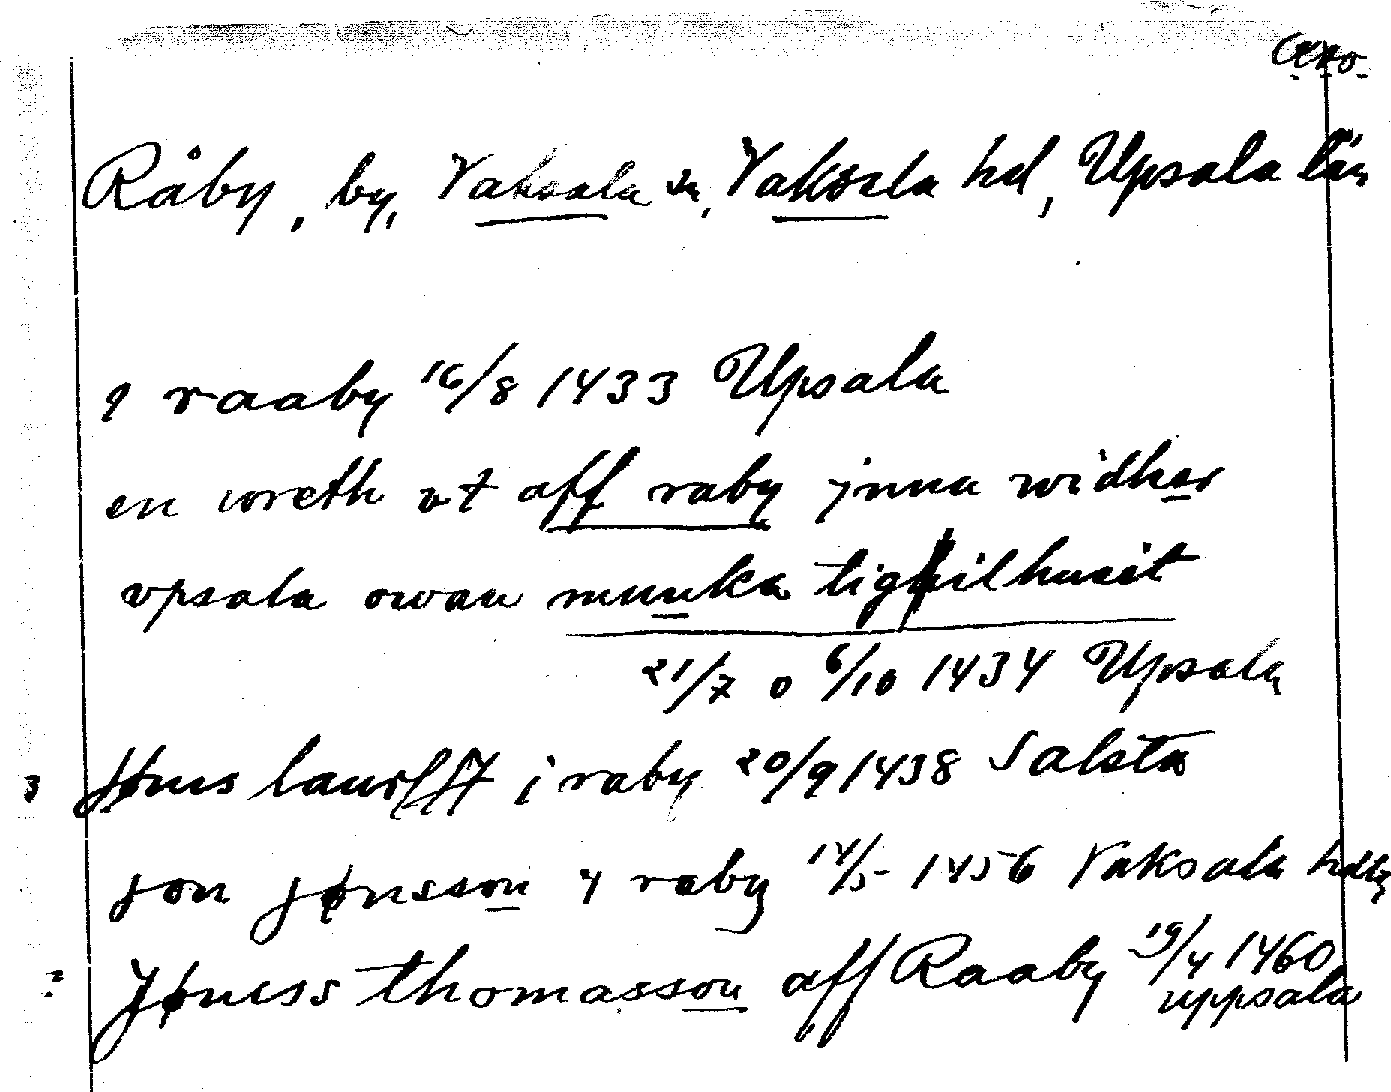 Råby, by, Vaksala sn, Vaksala hd, Upsala län
j raaby 16/8 1433 Upsala
en wreth vt aff raby jnna widher
vpsala owan munka tighilhusit
21/7 o 6/10 1434 Upsala
3 Jønis laurisst i raby 20/9 1438 Salsta
jon jønsson y raby 14/5 1456 Vaksala hdtg
2 Jøness thomasson aff Raaby 19/4 1460
uppsala